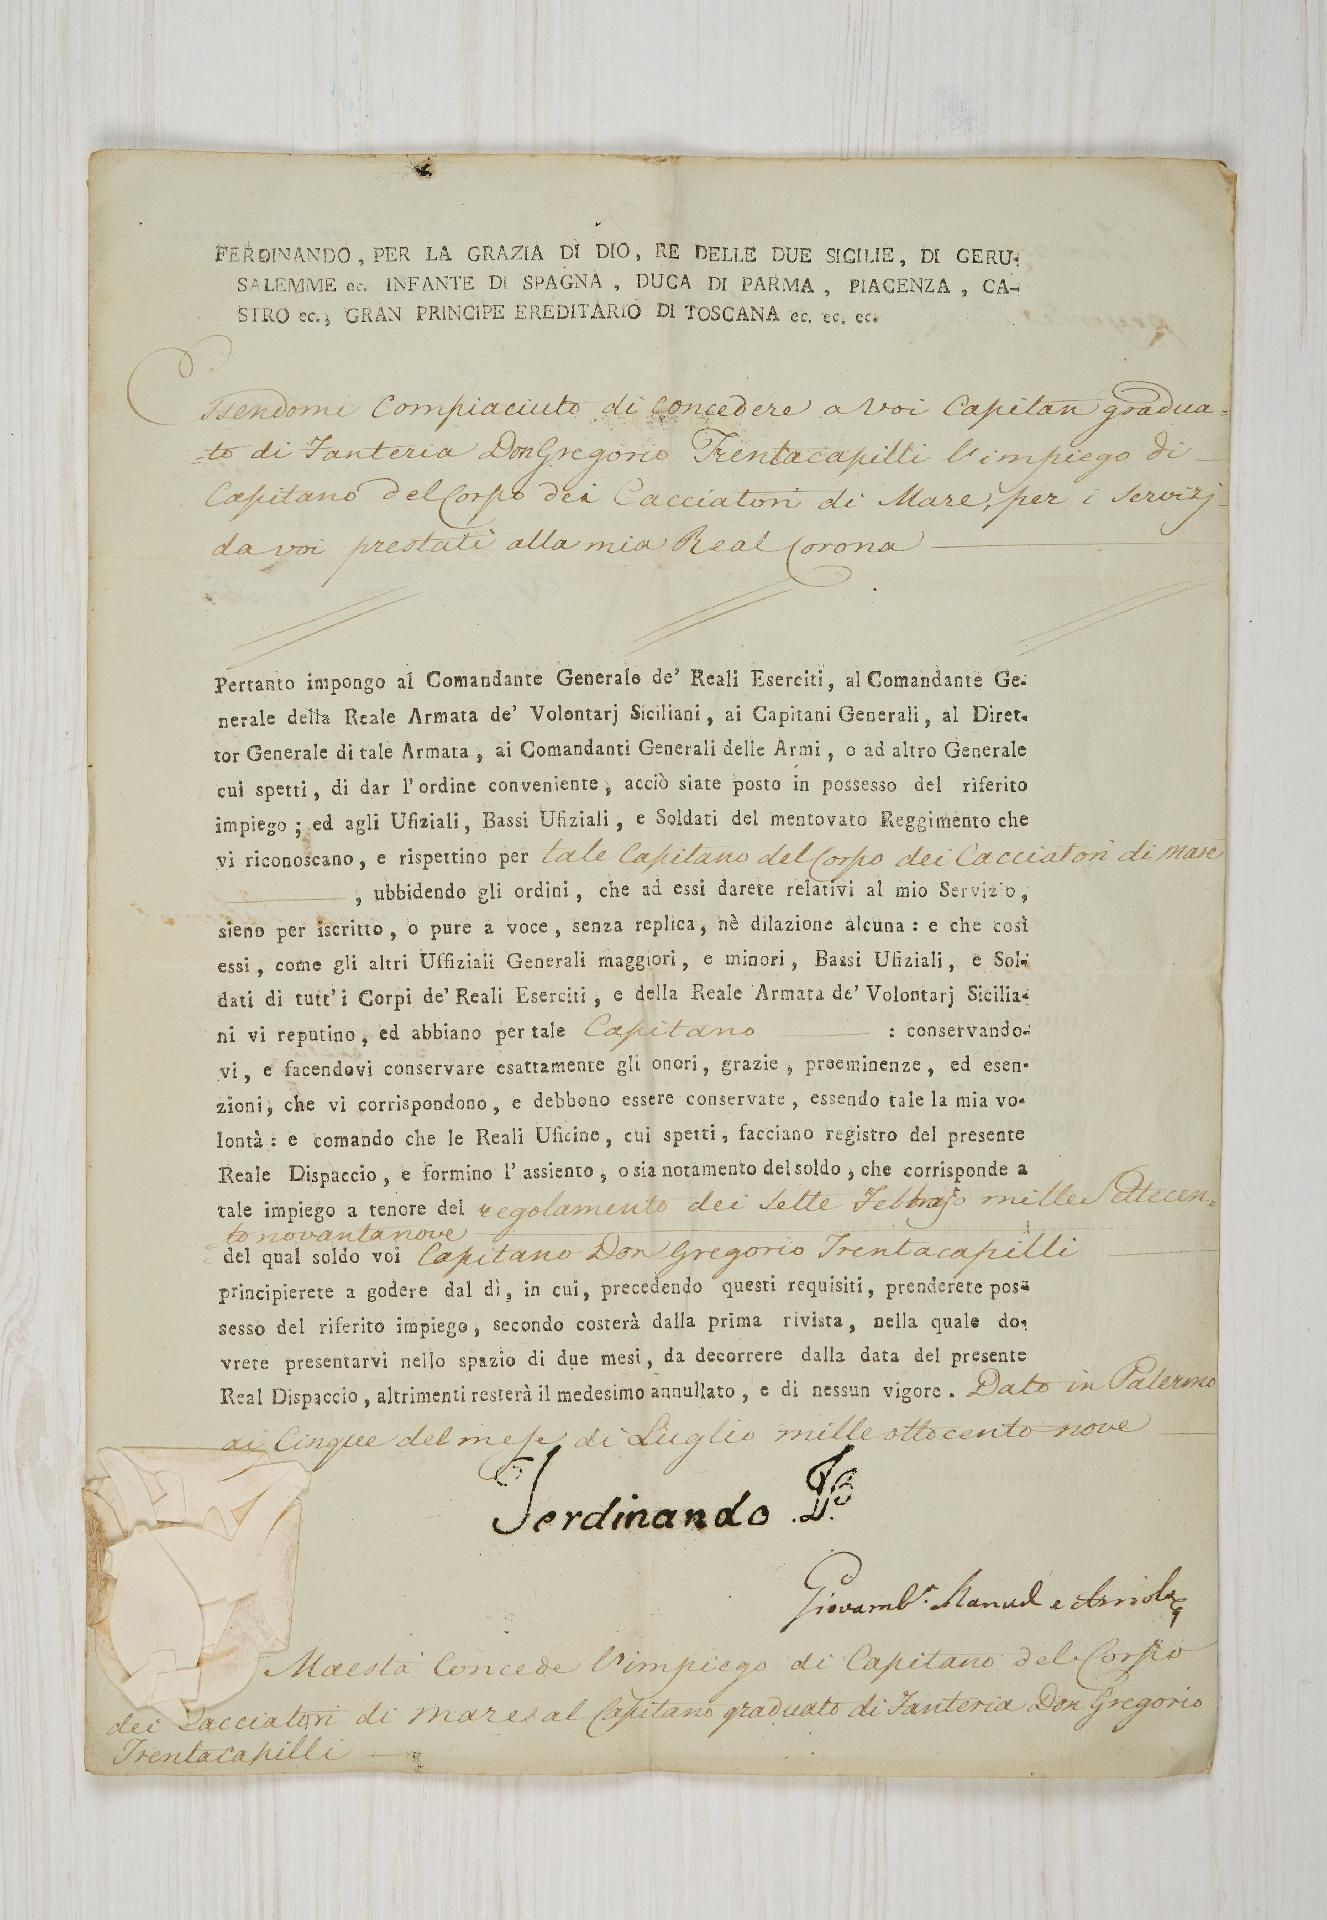 FERDINANDO, PER LA GRAZIA DI DIO, RE DELLE DUE SICILIE, DI GERU-
SALEMME ec. INFANTE DI SPAGNA, DUCA DI PARMA, PIACENZA, CA-
STRO ec., GRAN PRINCIPE EREDITARIO DI TOSCANA ec. ec. ec.
Essendomi Compiaciuto di concedere a voi Capitan gradua-
=to di Fanteria Don Gregorio Trentacapilli l'impiego di
Capitano del Corpo dei Cacciatori di Mare, per i servizj
da voi prestati alla mia Real Corona
Pertanto impongo al Comandante Generale de' Reali Eserciti, al Comandante Ge-
nerale della Reale Armata de' Volontarj Siciliani, ai Capitani Generali, al Diret-
tor Generale di tale Armata, ai Comandanti Generali delle Armi, o ad altro Generale
cui spetti, di dar l'ordine conveniente, acciò siate posto in possesso del riferito
impiego; ed agli Ufiziali, Bassi Ufiziali, e Soldati del mentovato Reggimento che
vi riconoscano, e rispettino per tale Capitano del Corpo dei Cacciatori di mare
, ubbidendo gli ordini, che ad essi darete relativi al mio Servizio,
sieno per iscritto, o pure a voce, senza replica, nè dilazione alcuna: e che così
essi, come gli altri Uffiziali Generali maggiori, e minori, Bassi Ufiziali, e Sol-
dati di tutt'i Corpi de' Reali Eserciti, e della Reale Armata de' Volontarj Sicilia-
ni vi reputino, ed abbiano per tale Capitano : conservando-
vi, e facendovi conservare esattamente gli onori, grazie, preeminenze, ed esen-
zioni, che vi corrispondono, e debbono essere conservate, essendo tale la mia vo-
lontà: e comando che le Reali Uficine, cui spetti, facciano registro del presente
Reale Dispaccio, e formino l'assiento, o sia notamento del soldo, che corrisponde a
tale impiego a tenore del regolamento dei sette Febbrajo mille Settecen-
to novantanove
del qual soldo voi Capitano Don Gregorio Trentacapilli
principierete a godere dal dì, in cui, precedendo questi requisiti, prenderete pos-
sesso del riferito impiego, secondo costerà dalla prima rivista, nella quale do-
vrete presentarvi nello spazio di due mesi, da decorrere dalla data del presente
Real Dispaccio, altrimenti resterà il medesimo annullato, e di nessun vigore. Dato in Palermo
ai Cinque del mese di Luglio mille ottocento nove
Ferdinando
Giovamb.a Manuel e Arriola
Maestà Concede l'impiego di Capitano del Corpo
dei Cacciatori di mare al Capitano graduato di Fanteria Don Gregorio
Trentacapilli